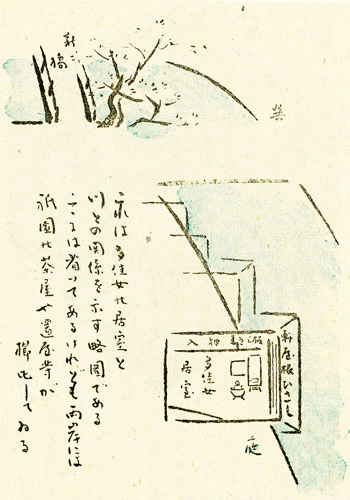 新橋
巽
これは多佳女の居室と
川との関係を示す略図である
こゝは省いてあるけれども両岸には
祇園の茶屋や置屋等が
櫛比してゐる
押入
多佳女
居室
屋根ひさし
庭